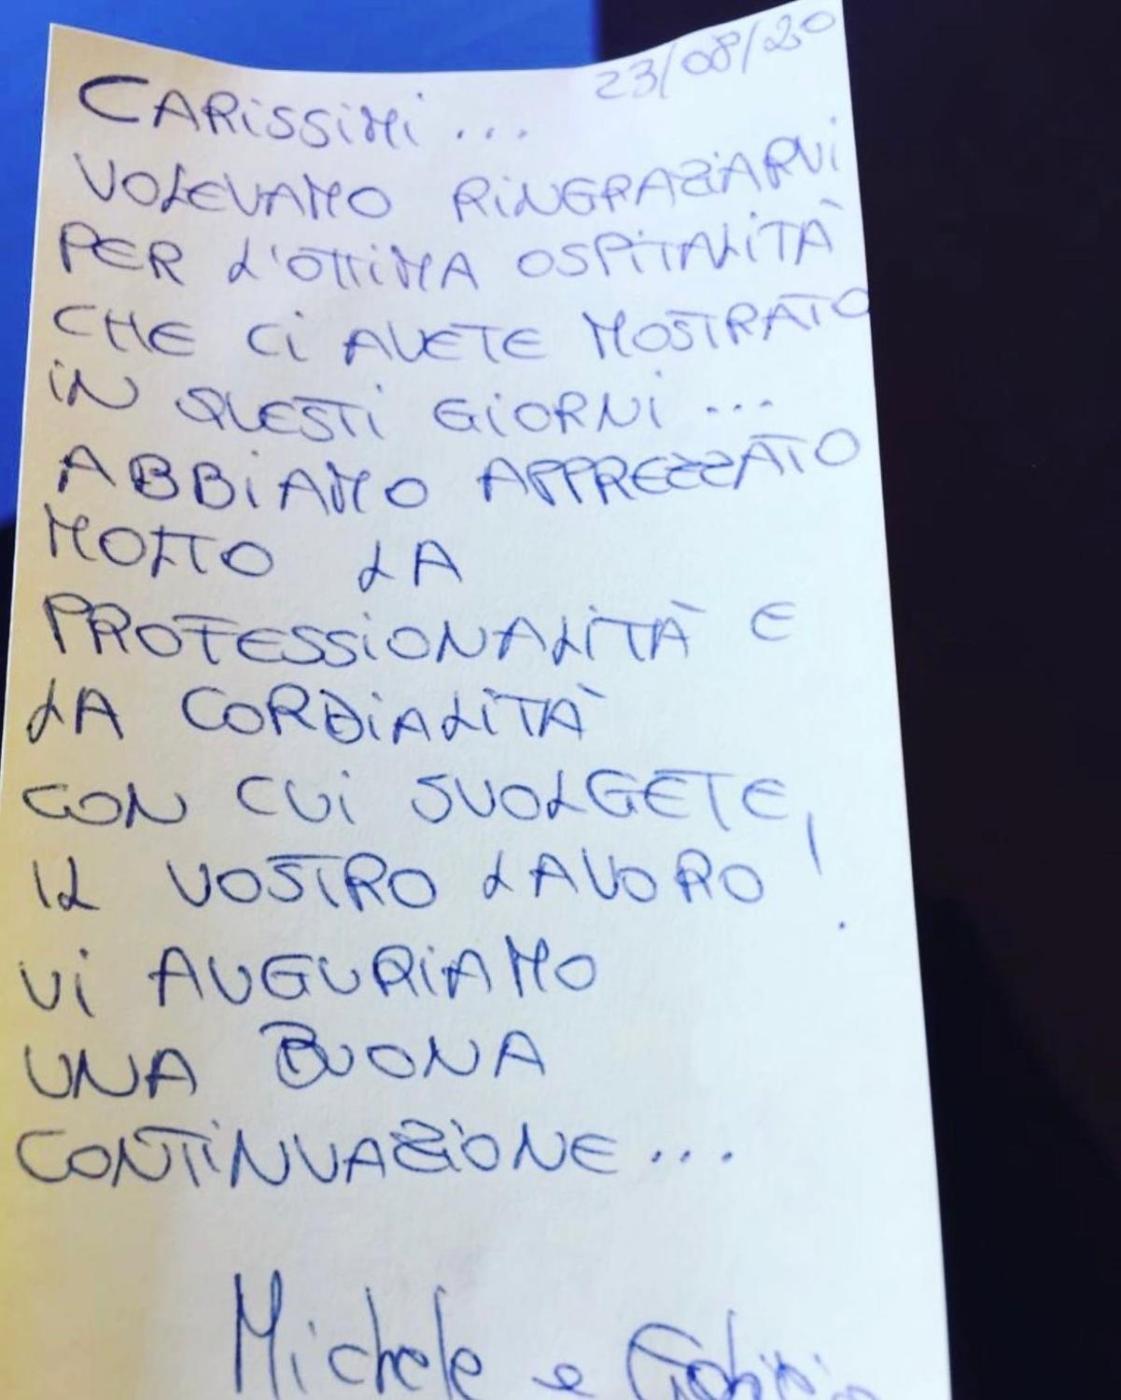 23/08/20
CARiSSiMi ...
VOLEVAMO RiNGRAZiARVi
PER L'OTTiMA OSPiTALiTÀ
CHE Ci AVETE MOSTRATO
iN QUESTi GiORNi ...
ABBiAMO APPREZZATO
MOLTO LA
PROFESSiONALiTÀ E
LA CORDiALiTÀ
CON CUi SVOLGETE
IL VOSTRO LAVORO !
Vi AUGURiAMO
UNA BUONA
CONTiNUAZiONE ...
Michele e